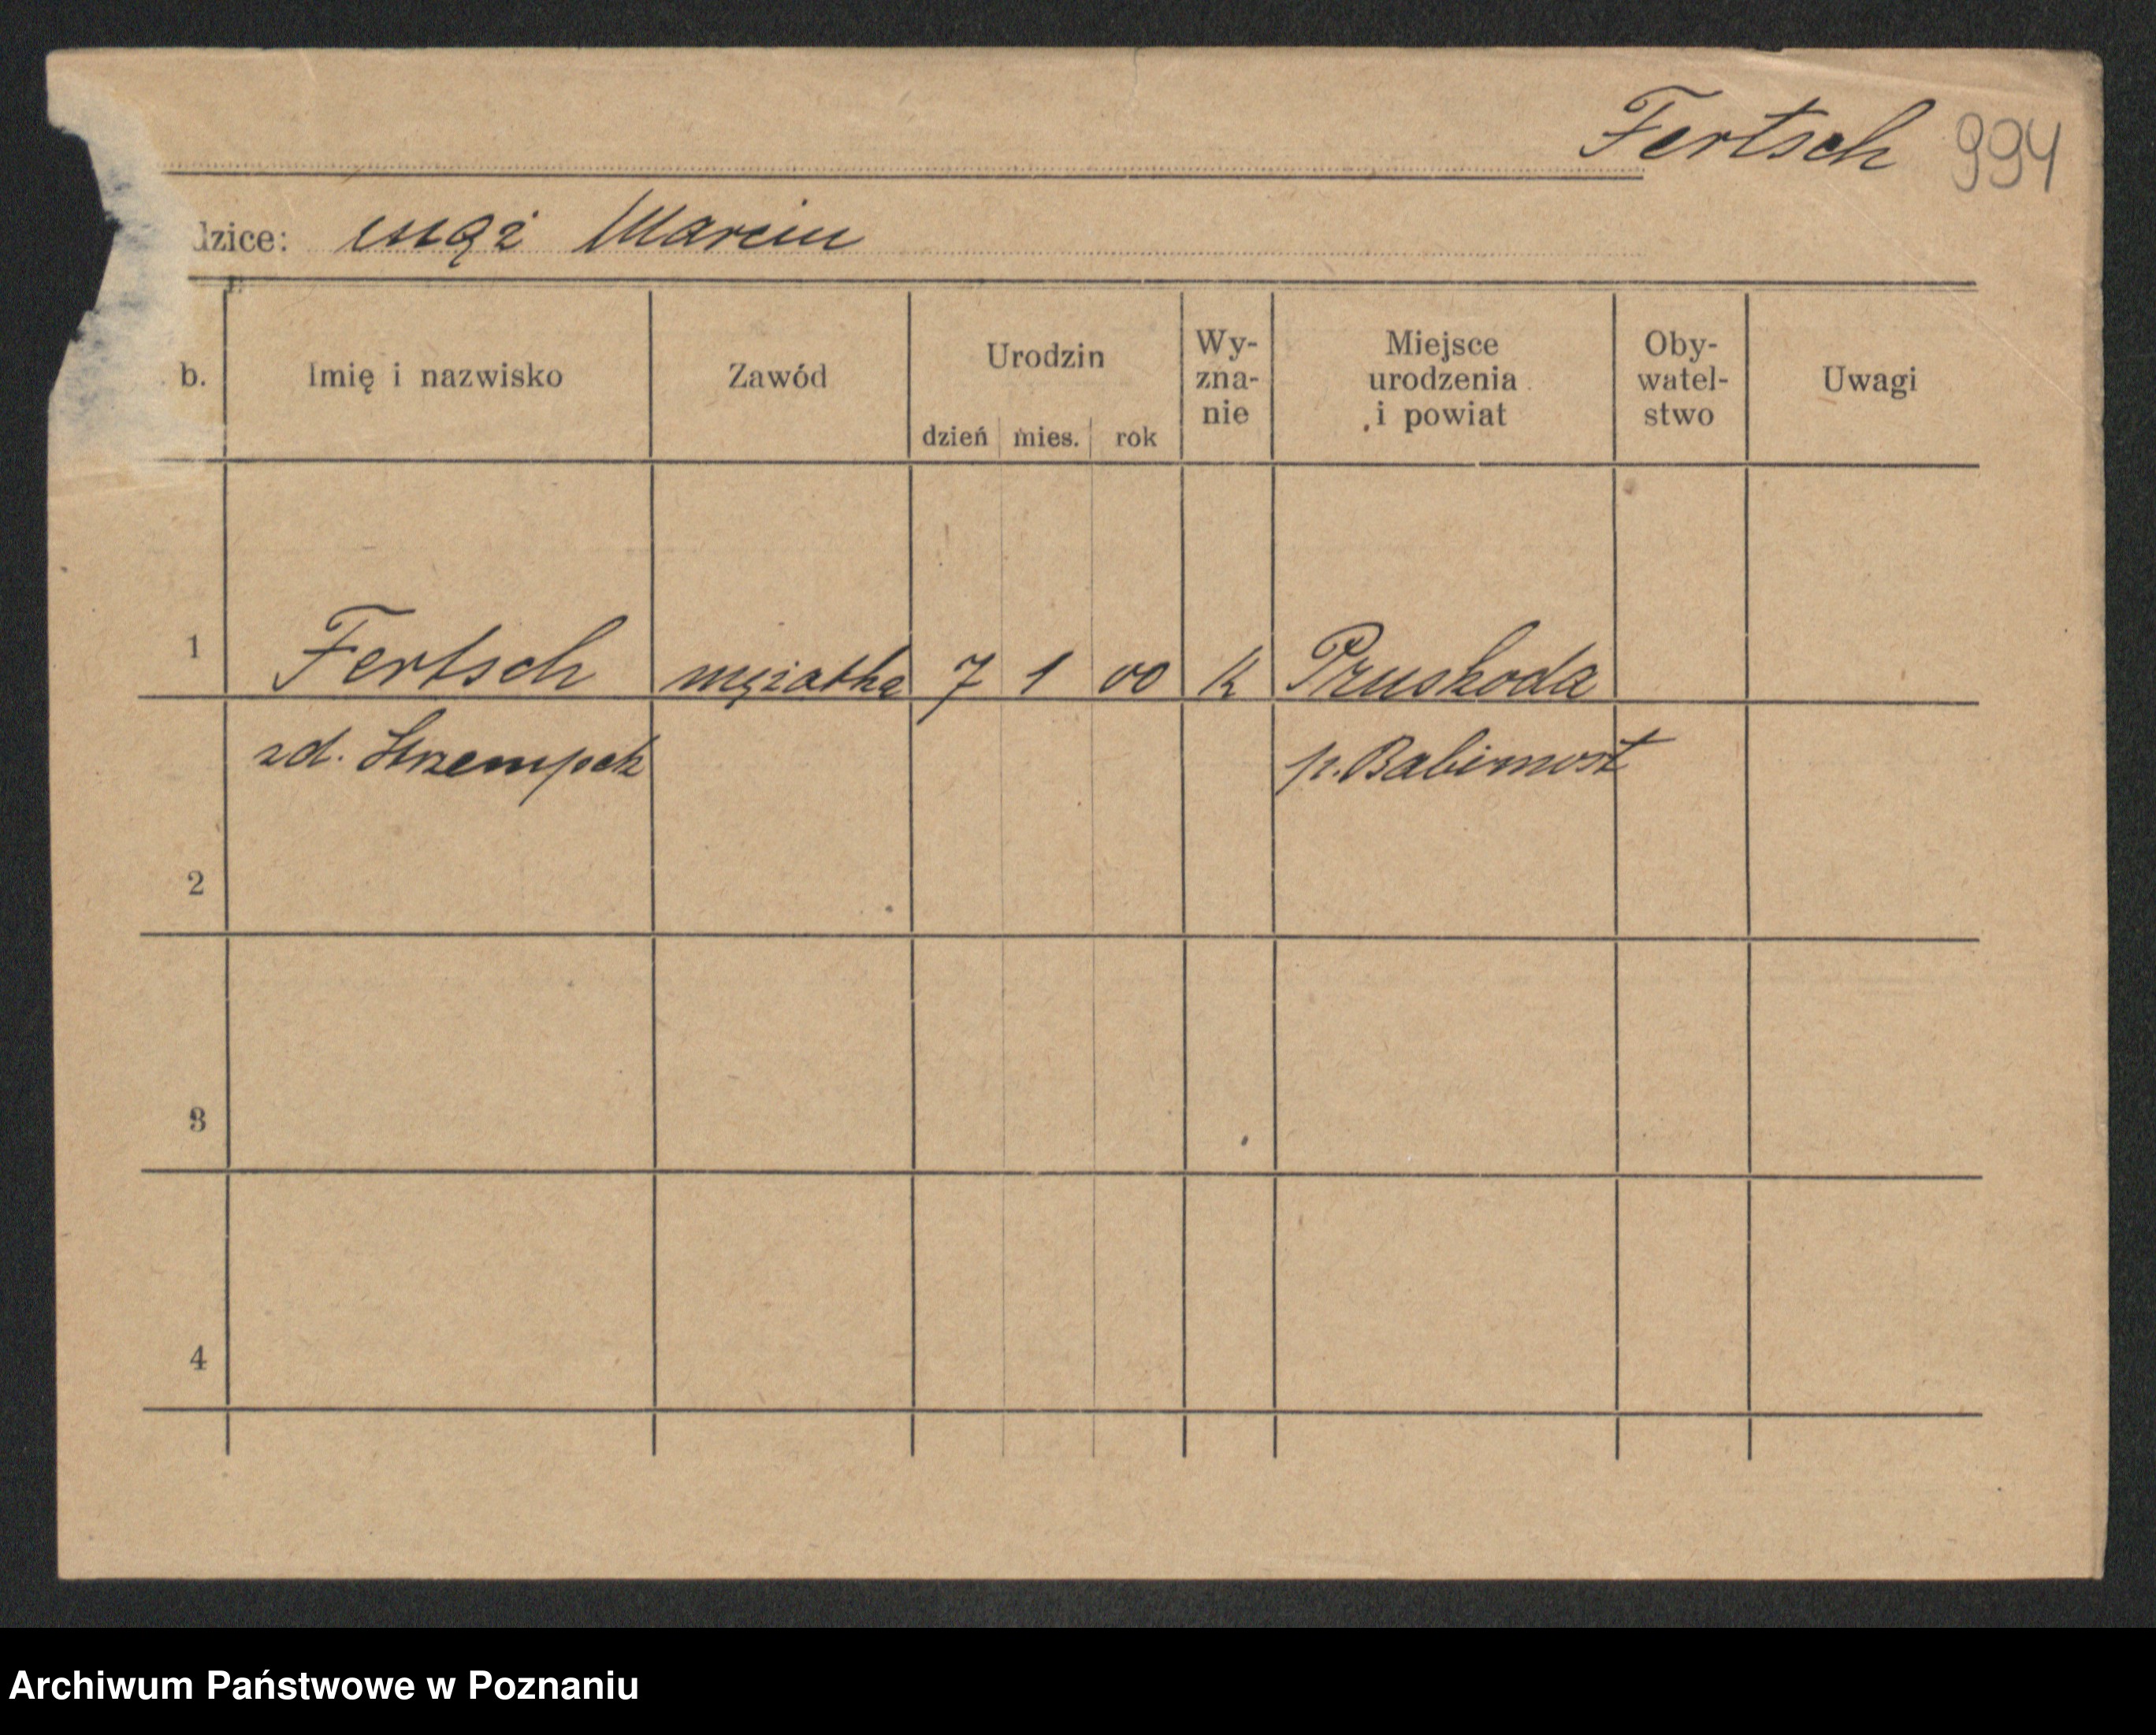 Fertsch 994
dzice: mąż Marcin
b. Imię i nazwisko Zawód Urodzin dzień mies. rok Wy-zna-nie Miejsce urodzenia i powiat Oby-watel-stwo Uwagi
1 Fertsch mężatka 7 1 00 k Pruskoda
zd. Strzempek p. Babimost
2
3
4
Archiwum Państwowe w Poznaniu